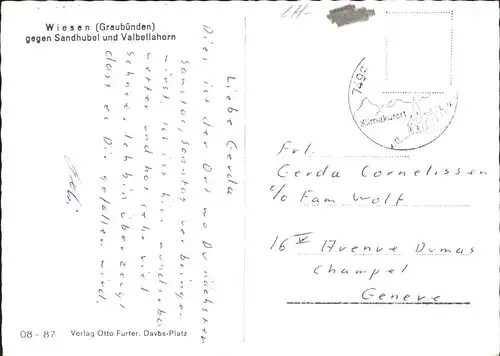 Wiesen (Graubünden)
gegen Sandhubel und Valbellahorn
CH-
7490
Klimakurort
Liebe Gerda
Dies ist der Ort wo Du nächsten
Samstag, Sonntag verbringen
wirst. Es ist hier wunderbar
Wetter und hat sehr viel
Schnee. Ich bin überzeugt
dass es Dir gefallen wird.
Frl.
Gerda Cornelissen
c/o Fam Wolf
16 V Avenue Dumas
Champel
Geneve
08-87 Verlag Otto Furter, Davos-Platz